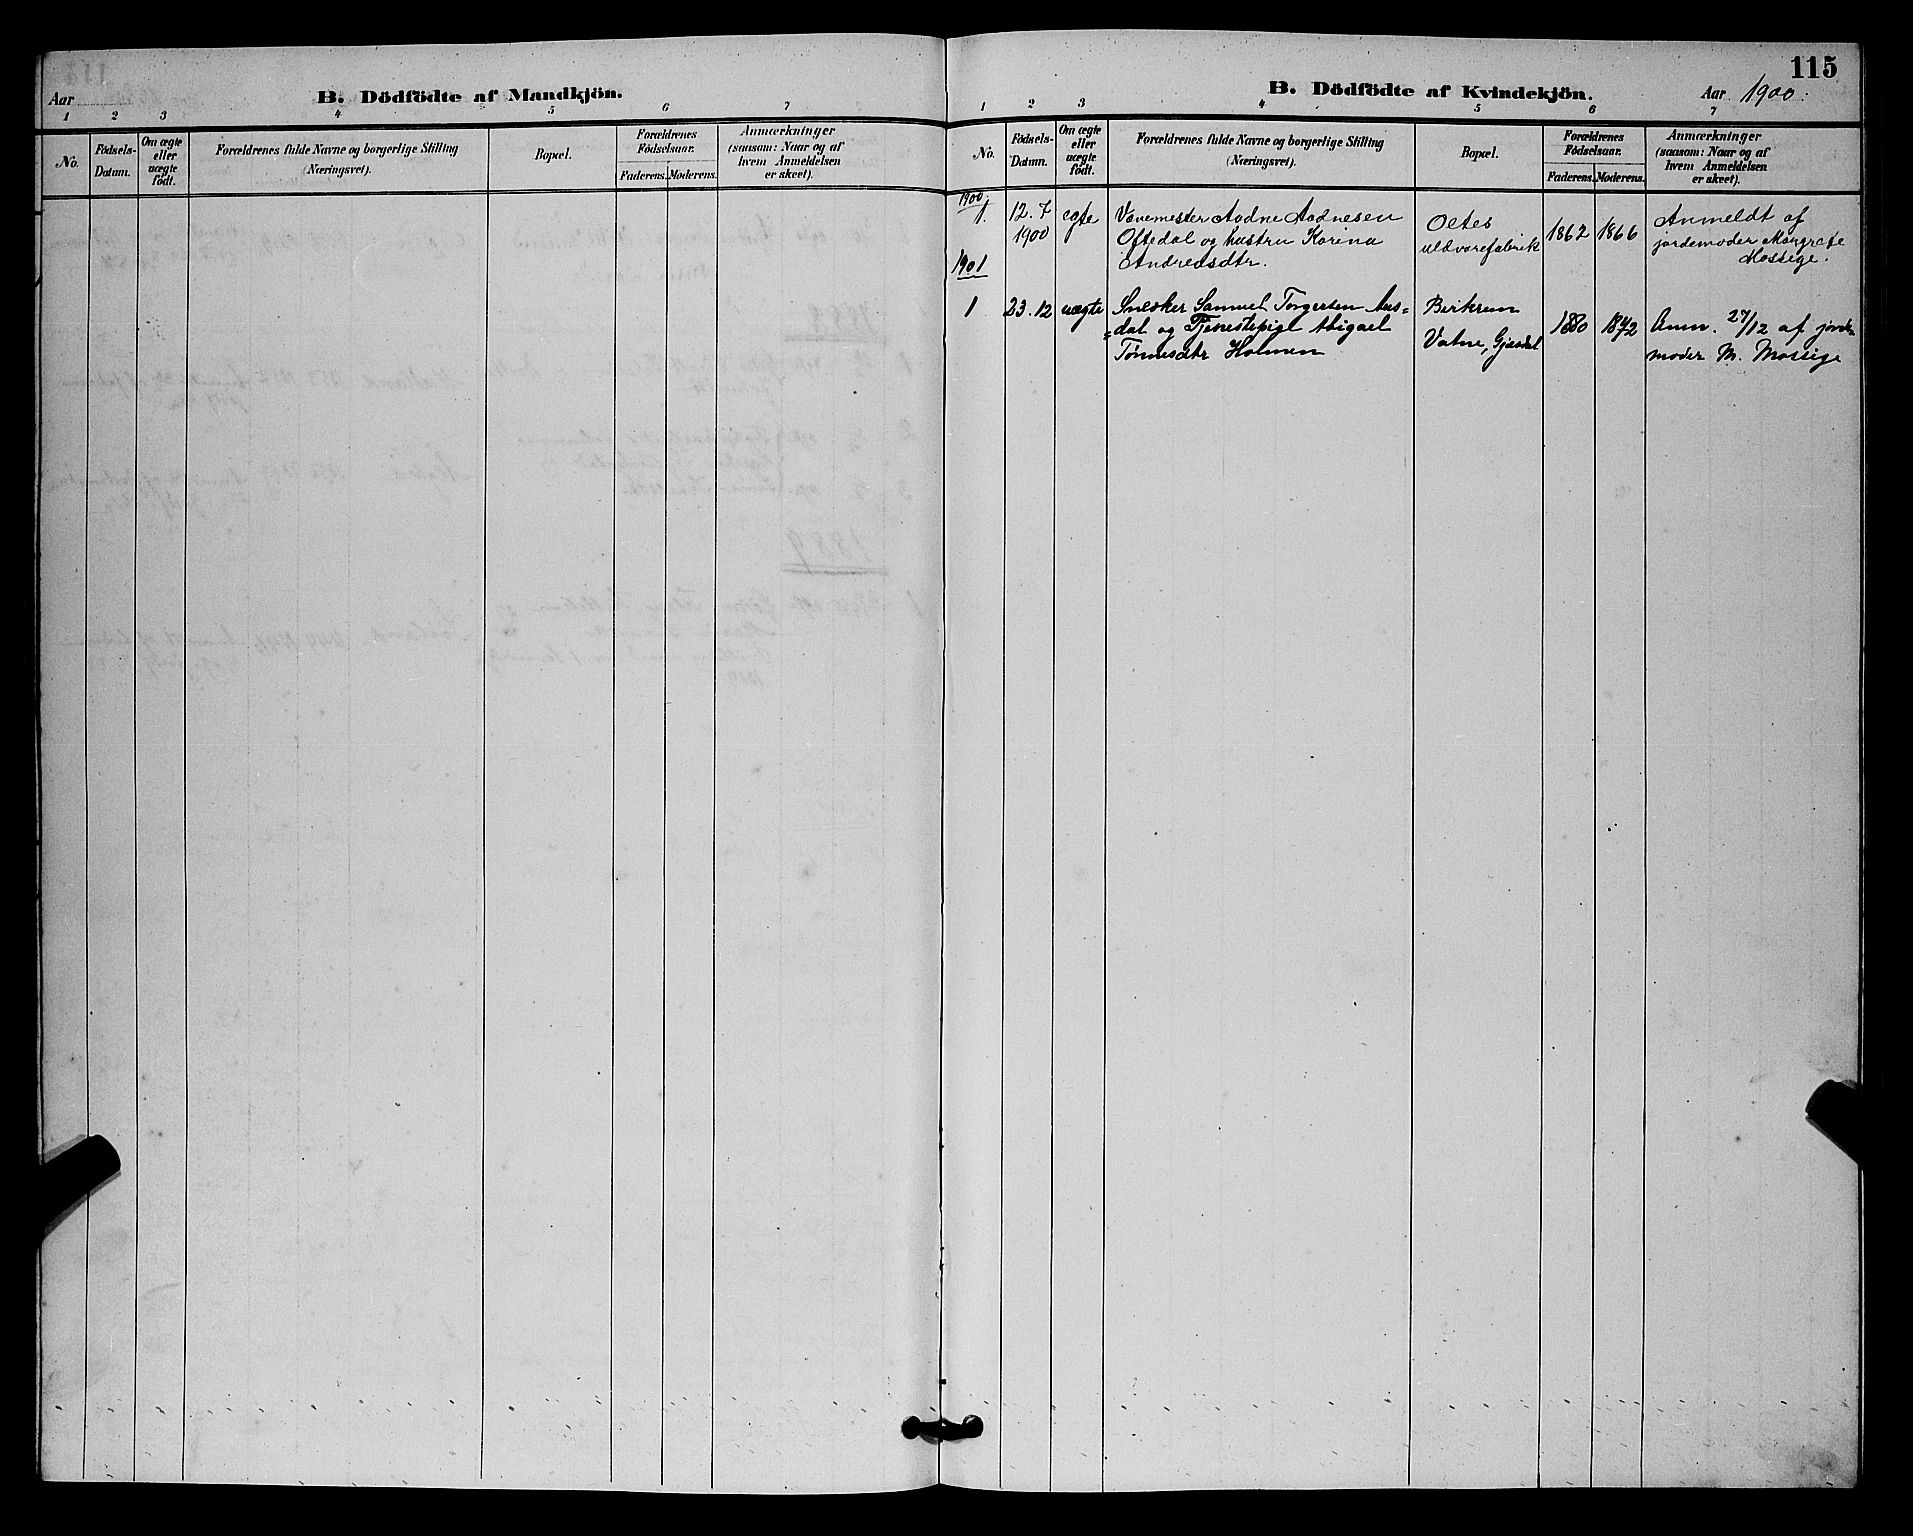 Aar
B. Dödfödte af Mandkjön.
1 2 3 4 5 6 7
No.
Födsels-
Datum.
Om ægte
eller
uægte
födt.
Forældrenes fulde Navne og borgerlige Stilling
(Næringsvei).
Bopæl.
Forældrenes
Födselsaar.
Faderens. Moderens.
Anmærkninger
(saasom: Naar og af
hvem Anmeldelsen
er skeet).
115
B. Dödfödte af Kvindekjön.
Aar 1900.
1 2 3 4 5 6 7
No.
Födsels-
Datum.
Om ægte
eller
uægte
födt.
Forældrenes fulde Navne og borgerlige Stilling
(Næringsvei).
Bopæl.
Forældrenes
Födselsaar.
Faderens. Moderens.
Anmærkninger
(saasom: Naar og af
hvem Anmeldelsen
er skeet).
1900
1. 12.7 egte Vævemester Aadne Aadnesen Oltes 1862 1866 Anmeldt af
1900 Oftedal og hustru Karina uldvarefabrik jordemoder Margrete
1901 Andreasdtr. Mossige.
1 23.12 uægte Snedker Samuel Torgersen Aus= Birkrem 1880 1872 Anm. 27/12 af jorde-
=dal og Tjenestepige Abigael Vatne, Gjesdal moder M. Mossige
Tønnesdtr Holmen